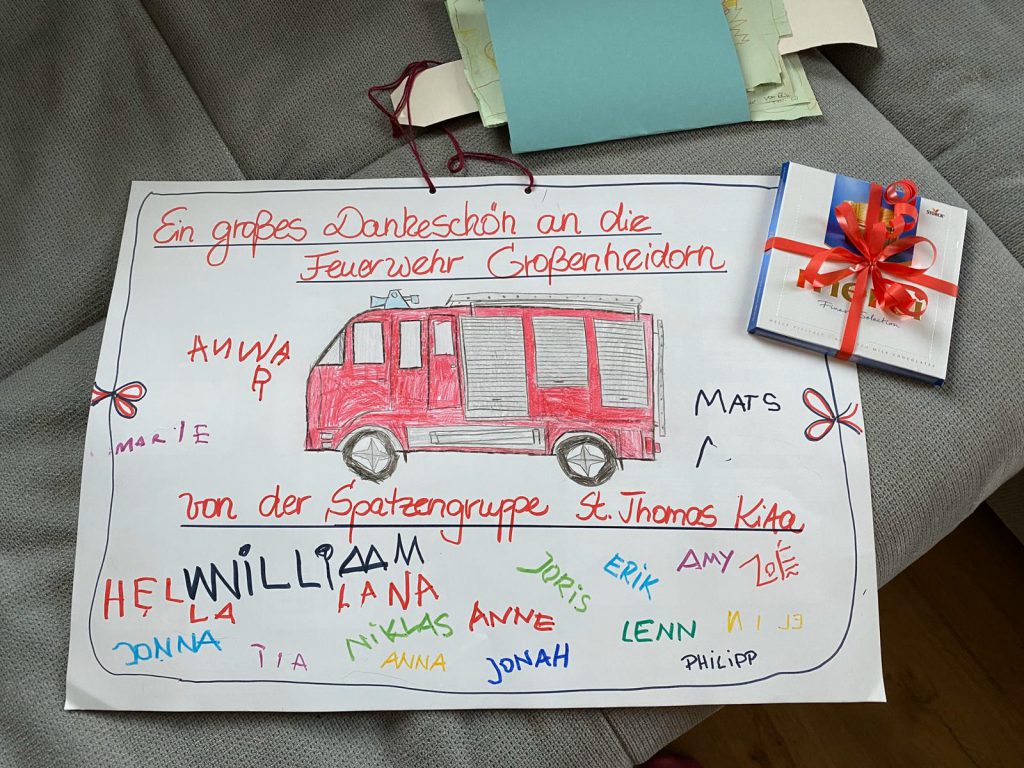 Ein großes Dankeschön an die
Feuerwehr Großenheidorn
STORCK
merci
Finest Selection
ANWA
R
MATS
MARIE
von der Spatzengruppe St. Thomas KiTa
WILLIAAM
HEL
LA
LANA
JORIS
ERIK
AMY
ZOÉ
JONNA
TIA
NIKLAS
ANNA
ANNE
JONAH
LENN
PHILIPP